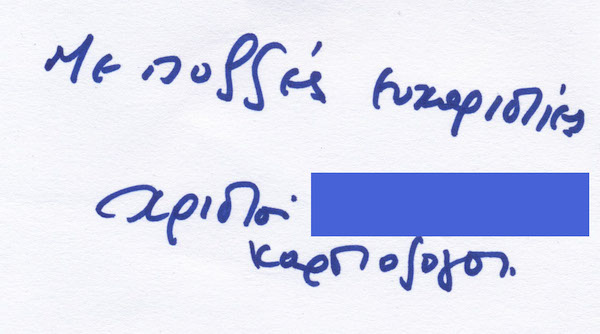 Με πολλές ευχαριστίες
αριστοι
καρδιολογοι.